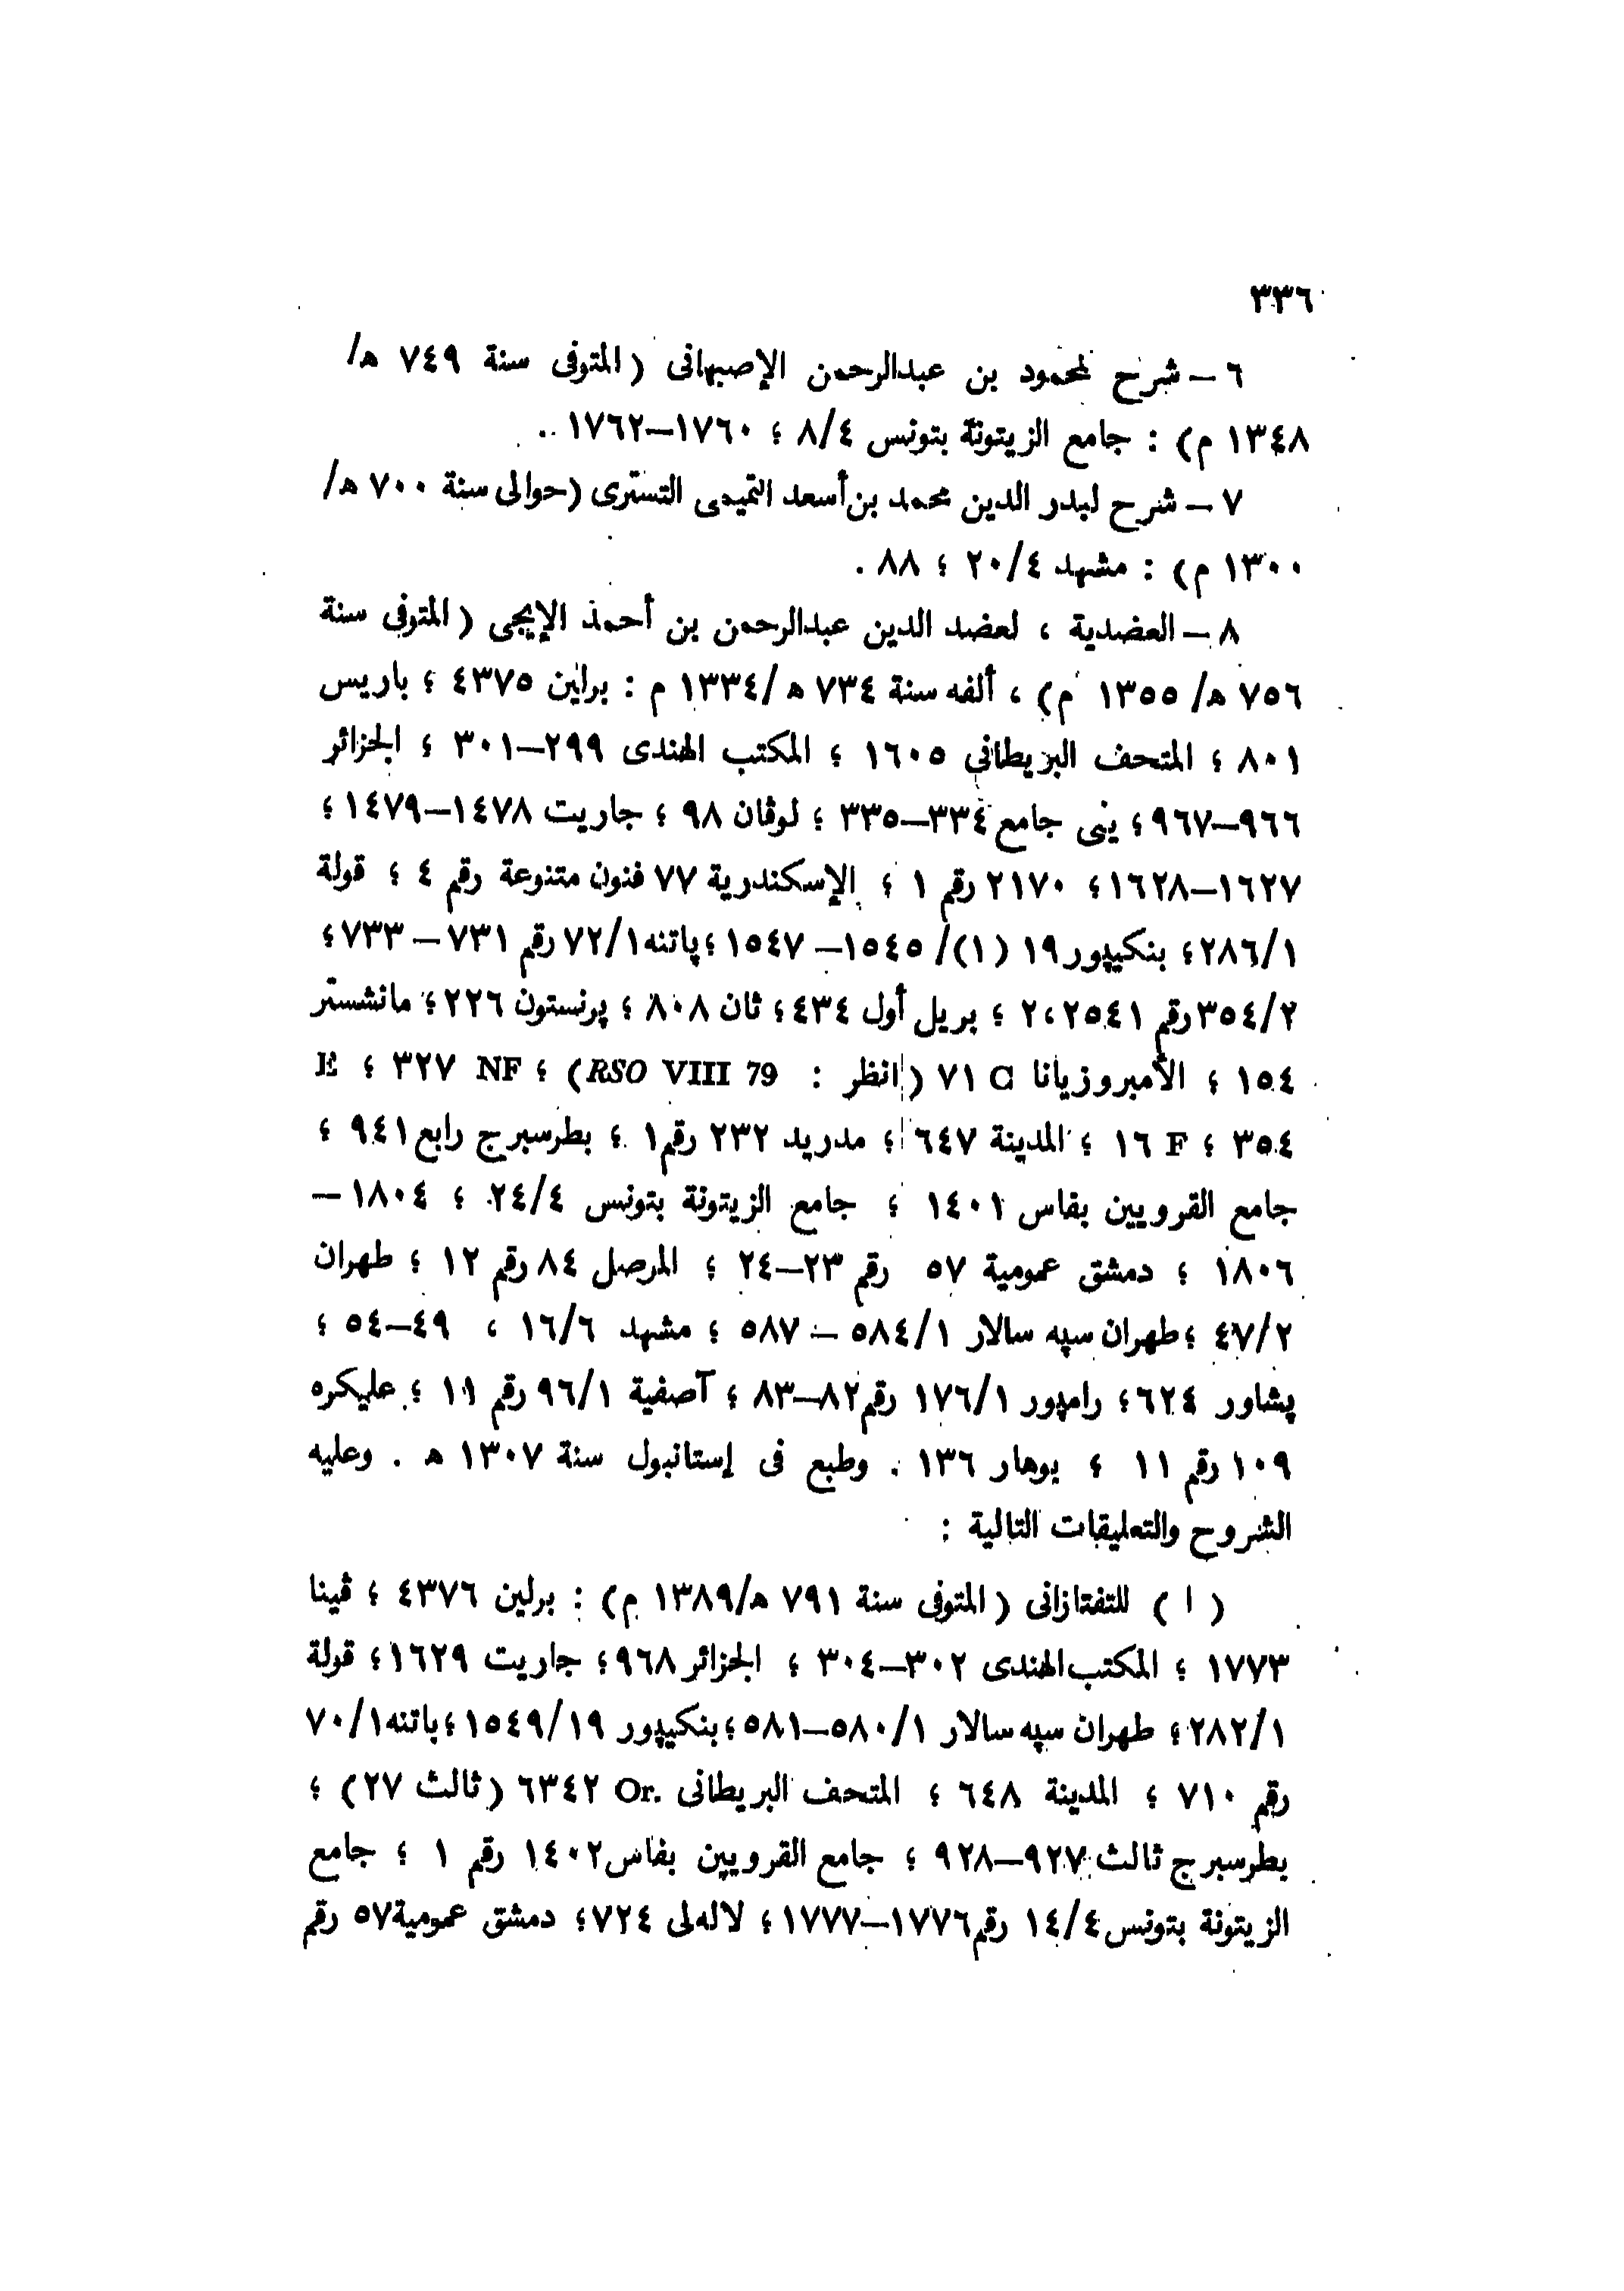 ٣٣٦
٦ – شرح لمحمود بن عبدالرحمن الإصبهانى ( المتوفى سنة ٧٤٩ ه/
١٣٤٨ م) : جامع الزيتونة بتونس ٨/٤ ؛ ١٧٦٠–١٧٦٢ .
٧ – شرح لبدر الدين محمد بن أسعد التميمى التسترى (حوالى سنة ٧٠٠ ه/
١٣٠٠ م) : مشهد ٢٠/٤ ؛ ٨٨ .
٨ – العضدية ، لعضد الدين عبدالرحمن بن أحمد الإيجى ( المتوفى سنة
٧٥٦ ه/ ١٣٥٥ م) ، ألفه سنة ٧٣٤ ه/١٣٣٤ م : برلين ٤٣٧٥ ؛ باريس
٨٠١ ؛ المتحف البريطانى ١٦٠٥ ؛ المكتب الهندى ٢٩٩–٣٠١ ؛ الجزائر
٩٦٦–٩٦٧؛ ينى جامع ٣٣٤–٣٣٥ ؛ لوڤان ٩٨ ؛ جاريت ١٤٧٨–١٤٧٩ ؛
١٦٢٧–١٦٢٨؛ ٢١٧٠ رقم ١ ؛ الإسكندرية ٧٧ فنون متنوعة رقم ٤ ؛ قولة
٢٨٦/١؛ بنكيپور ١٩ (١)/ ١٥٤٥– ١٥٤٧ ؛ پاتنه ٧٢/١ رقم ٧٣١ – ٧٣٣؛
٣٥٤/٢ رقم ٢،٢٥٤١ ؛ بريل أول ٤٣٤؛ ثان ٨٠٨ ؛ پرنستون ٢٢٦؛ مانشستر
١٥٤ ؛ الأمبروزيانا C ٧١ (انظر : RSO VIII 79) ؛ NF ٣٢٧ ؛ E
٣٥٤ ؛ F ١٦ ؛ المدينة ٦٤٧ ؛ مدريد ٢٣٢ رقم ١ ؛ بطرسبرج رابع ٩٤١ ؛
جامع القرويين بفاس ١٤٠١ ؛ جامع الزيتونة بتونس ٢٤/٤ ؛ ١٨٠٤ –
١٨٠٦ ؛ دمشق عمومية ٥٧ رقم ٢٣–٢٤ ؛ المرصل ٨٤ رقم ١٢ ؛ طهران
٤٧/٢ ؛ طهران سپه سالار ٥٨٤/١ – ٥٨٧ ؛ مشهد ١٦/٦ ، ٤٩–٥٤ ؛
پشاور ٦٢٤؛ رامپور ١٧٦/١ رقم ٨٢–٨٣ ؛ آصفية ٩٦/١ رقم ١١ ؛ عليكره
١٠٩ رقم ١١ ؛ بوهار ١٣٦ . وطبع فى إستانبول سنة ١٣٠٧ ه . وعليه
الشروح والتعليقات التالية :
( ا ) للتفتازانى ( المتوفى سنة ٧٩١ ه/١٣٨٩ م) : برلين ٤٣٧٦ ؛ ڤينا
١٧٧٣ ؛ المكتب الهندى ٣٠٢–٣٠٤ ؛ الجزائر ٩٦٨؛ جاريت ١٦٢٩؛ قولة
٢٨٢/١؛ طهران سپه سالار ٥٨٠/١–٥٨١؛ بنكيپور ١٥٤٩/١٩ ؛ باتنه ٧٠/١
رقم ٧١٠ ؛ المدينة ٦٤٨ ؛ المتحف البريطانى Or. ٦٣٤٢ (ثالث ٢٧) ؛
بطرسبرج ثالث ٩٢٧–٩٢٨ ؛ جامع القرويين بفاس ١٤٠٢ رقم ١ ؛ جامع
الزيتونة بتونس ١٤/٤ رقم ١٧٧٦–١٧٧٧ ؛ لاله لى ٧٢٤؛ دمشق عمومية ٥٧ رقم